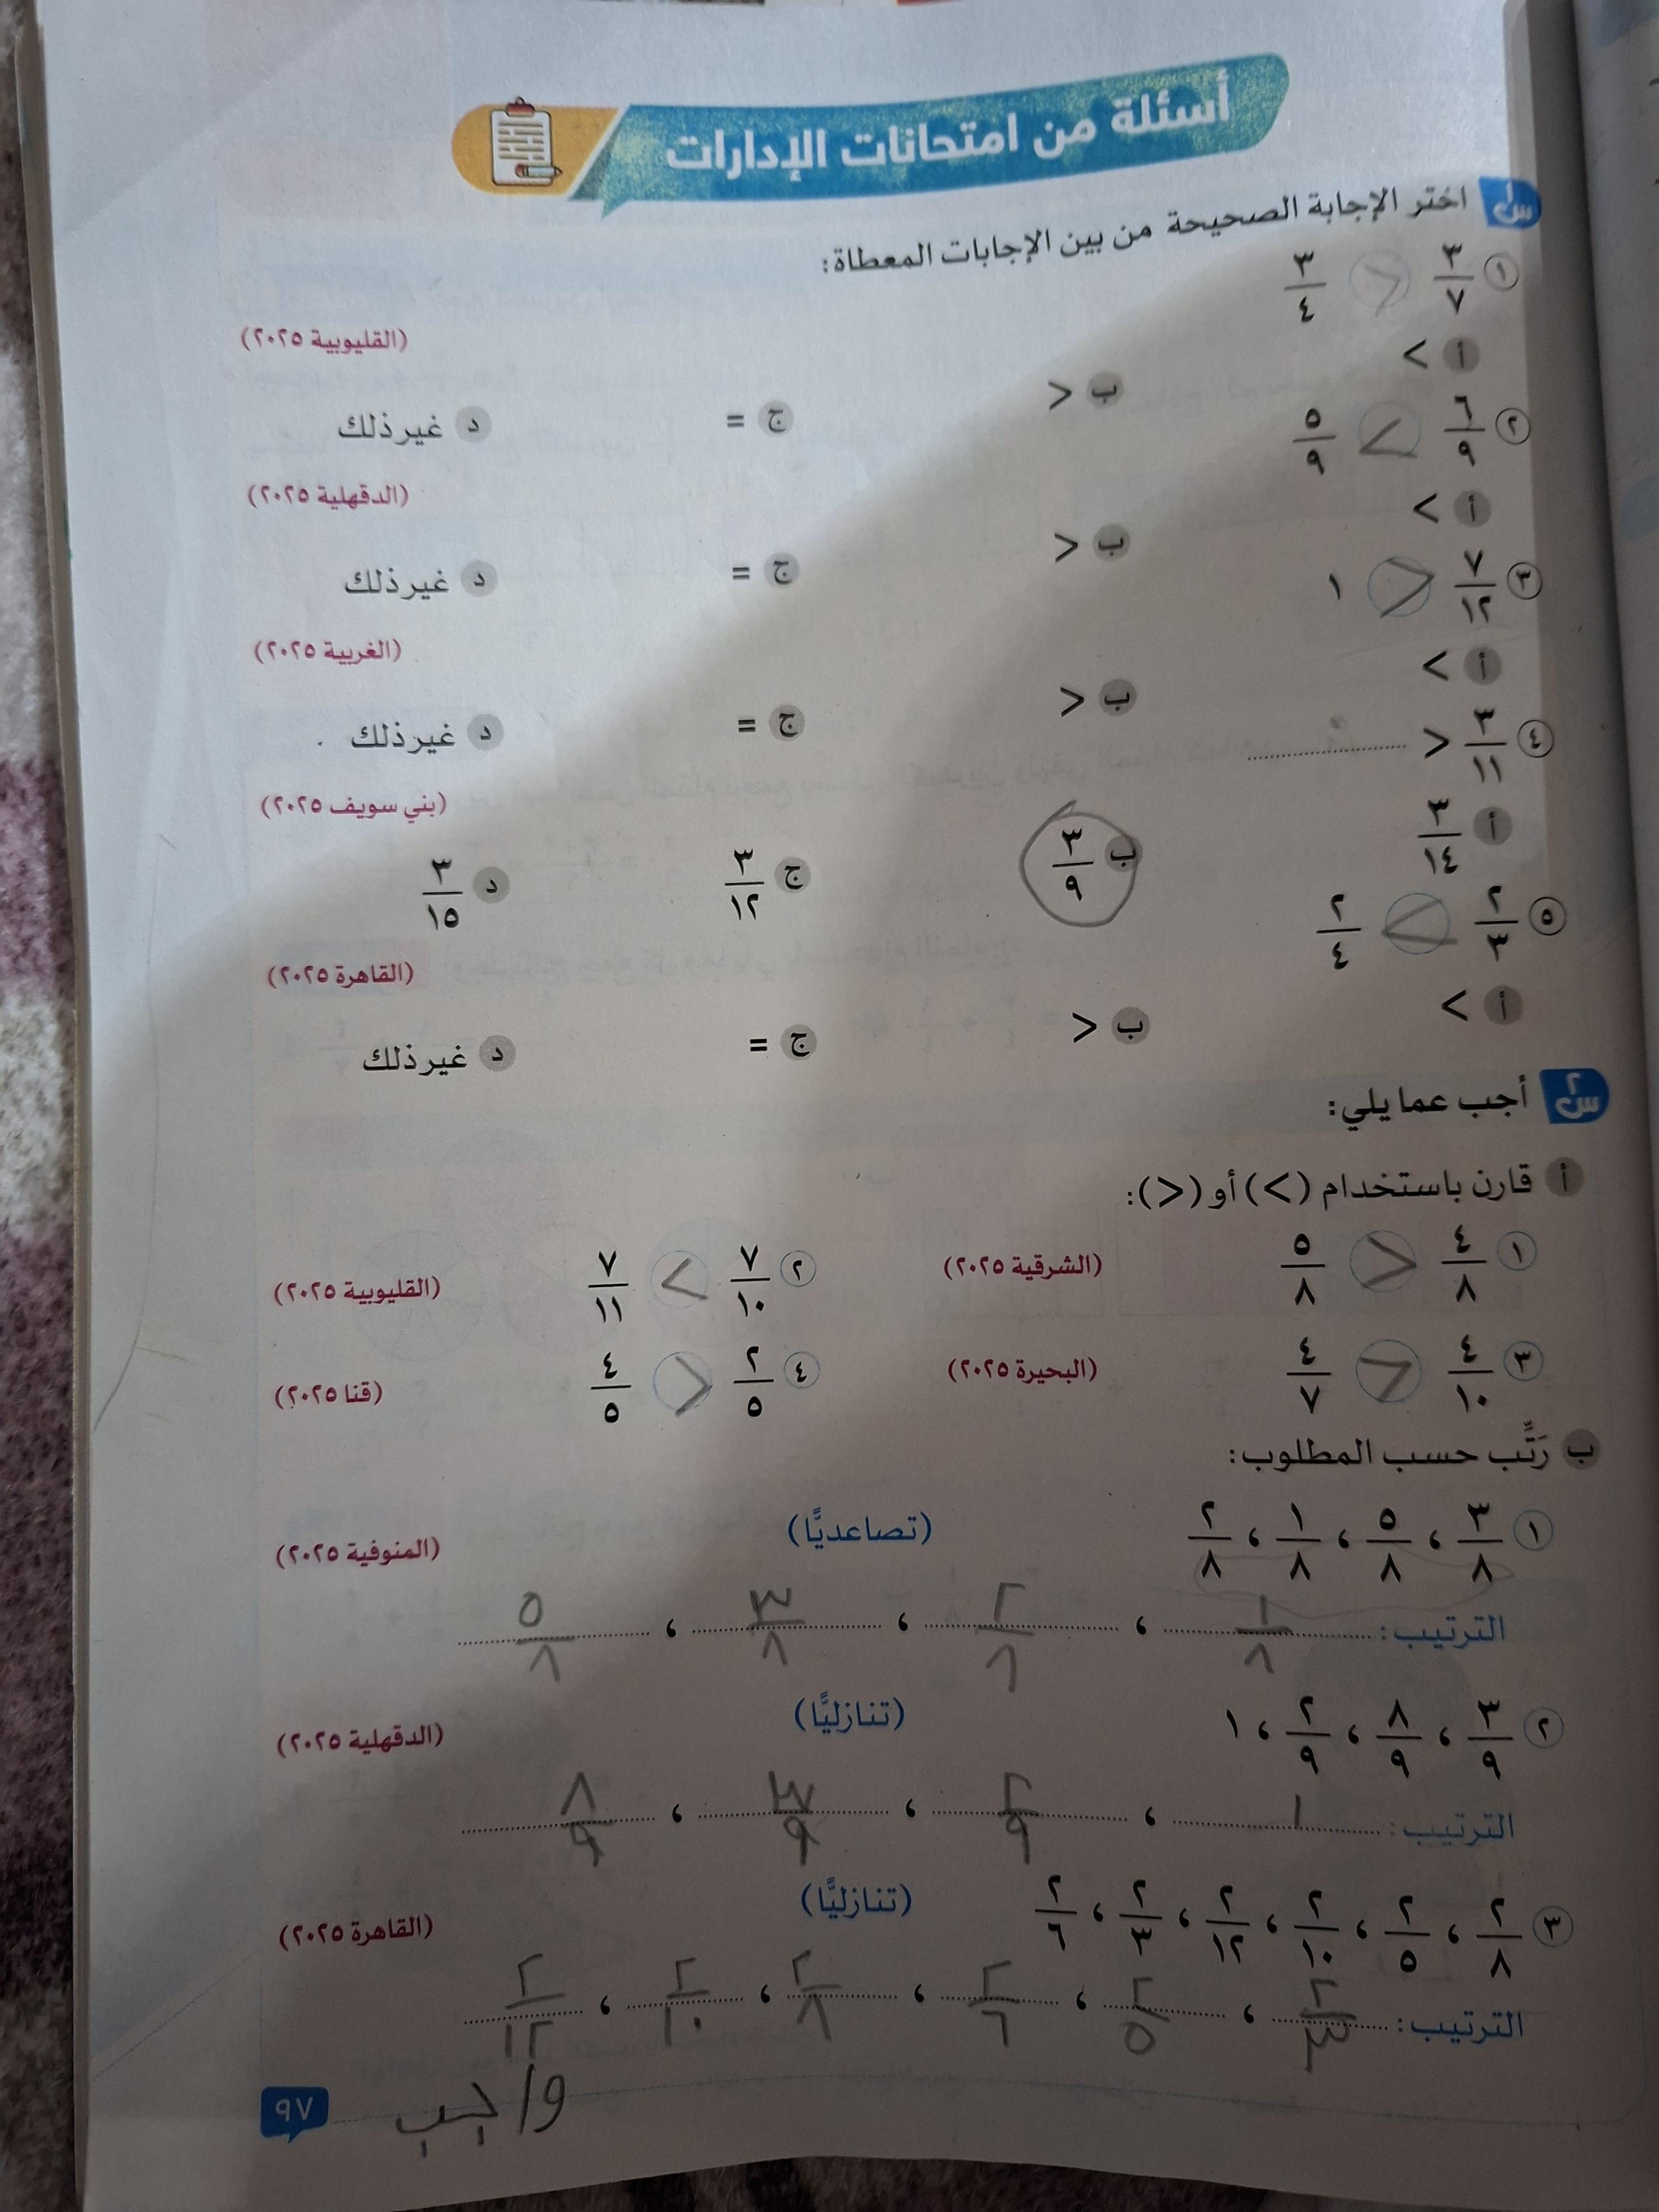 أسئلة من امتحانات الإدارات
س١ اختر الإجابة الصحيحة من بين الإجابات المعطاة:
١ ٣/٧ > ٣/٤ (القليوبية ٢٠٢٥)
أ < ب > ج = د غير ذلك
٢ ٦/٩ < ٥/٩ (الدقهلية ٢٠٢٥)
أ < ب > ج = د غير ذلك
٣ ٧/١٢ > ١ (الغربية ٢٠٢٥)
أ < ب > ج = د غير ذلك
٤ ٣/١١ > .................. (بني سويف ٢٠٢٥)
أ ٣/١٤ ب ٣/٩ ج ٣/١٢ د ٣/١٥
٥ ٢/٣ < ٢/٤ (القاهرة ٢٠٢٥)
أ < ب > ج = د غير ذلك
س٢ أجب عما يلي:
أ قارن باستخدام (<) أو (>):
١ ٤/٨ > ٥/٨ (الشرقية ٢٠٢٥) ٢ ٧/١٠ < ٧/١١ (القليوبية ٢٠٢٥)
٣ ٤/١٠ > ٤/٧ (البحيرة ٢٠٢٥) ٤ ٢/٥ > ٤/٥ (قنا ٢٠٢٥)
ب رَتِّب حسب المطلوب:
١ ٣/٨ ، ٥/٨ ، ١/٨ ، ٢/٨ (تصاعديًّا) (المنوفية ٢٠٢٥)
الترتيب: ١/٨ ، ٢/٨ ، ٣/٨ ، ٥/٨
٢ ٣/٩ ، ٨/٩ ، ٢/٩ ، ١ (تنازليًّا) (الدقهلية ٢٠٢٥)
الترتيب: ١ ، ٢/٩ ، ٣/٩ ، ٨/٩
٣ ٢/٨ ، ٢/٥ ، ٢/١٠ ، ٢/١٢ ، ٢/٣ ، ٢/٦ (تنازليًّا) (القاهرة ٢٠٢٥)
الترتيب: ٢/٣ ، ٢/٥ ، ٢/٦ ، ٢/٨ ، ٢/١٠ ، ٢/١٢
واجب
٩٧